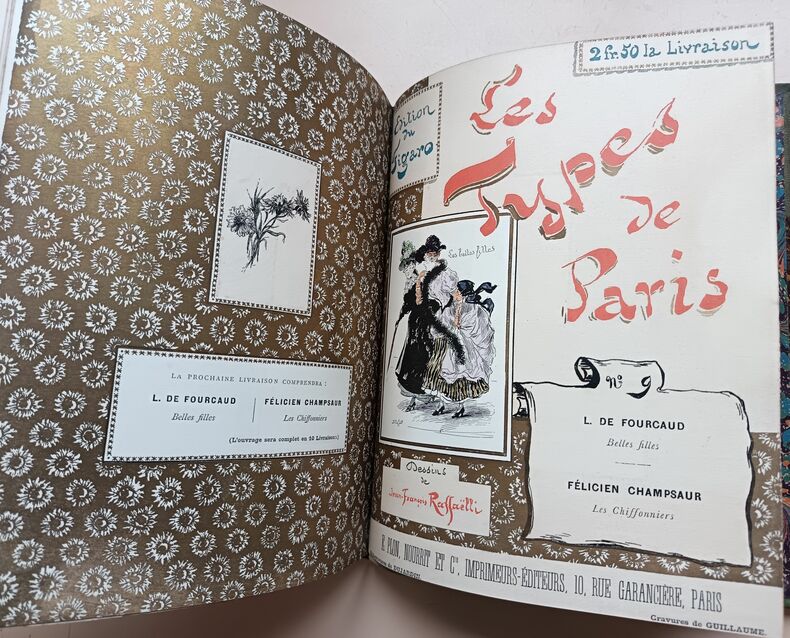 LA PROCHAINE LIVRAISON COMPRENDRA :
L. DE FOURCAUD
Belles filles
FÉLICIEN CHAMPSAUR
Les Chiffonniers
(L'ouvrage sera complet en 10 Livraisons.)
Edition
du
Figaro
2 fr. 50 la Livraison
Les
Types
de
Paris
Les belles filles
Dessins
de
Jean-François Raffaëlli
n° 9
L. DE FOURCAUD
Belles filles
FÉLICIEN CHAMPSAUR
Les Chiffonniers
E. PLON, NOURRIT ET Cie, IMPRIMEURS-ÉDITEURS, 10, RUE GARANCIÈRE, PARIS
Gravures de GUILLAUME.